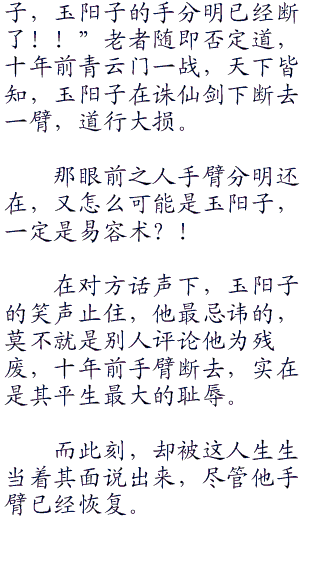 子，玉阳子的手分明已经断
了！！”老者随即否定道，
十年前青云门一战，天下皆
知，玉阳子在诛仙剑下断去
一臂，道行大损。
那眼前之人手臂分明还
在，又怎么可能是玉阳子，
一定是易容术？！
在对方话声下，玉阳子
的笑声止住，他最忌讳的，
莫不就是别人评论他为残
废，十年前手臂断去，实在
是其平生最大的耻辱。
而此刻，却被这人生生
当着其面说出来，尽管他手
臂已经恢复。